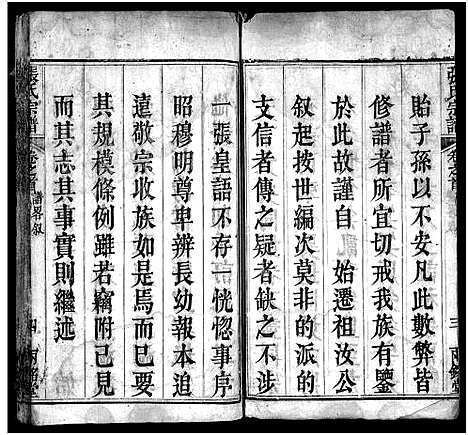 張氏宗譜
貽子孫以不安凡此數弊皆
修譜者所宜切戒我族有鑒
於此故謹自 始遷祖汝公
叙起按世編次莫非的派的
支信者傳之疑者缺之不涉
一張皇語不存一恍惚事序
昭穆明尊卑辨長幼報本追
遠敬宗收族如是焉而已要
其規模條例雖若竊附己見
而其志其事實則繼述
張氏宗譜
卷之首
譜畧叙
四